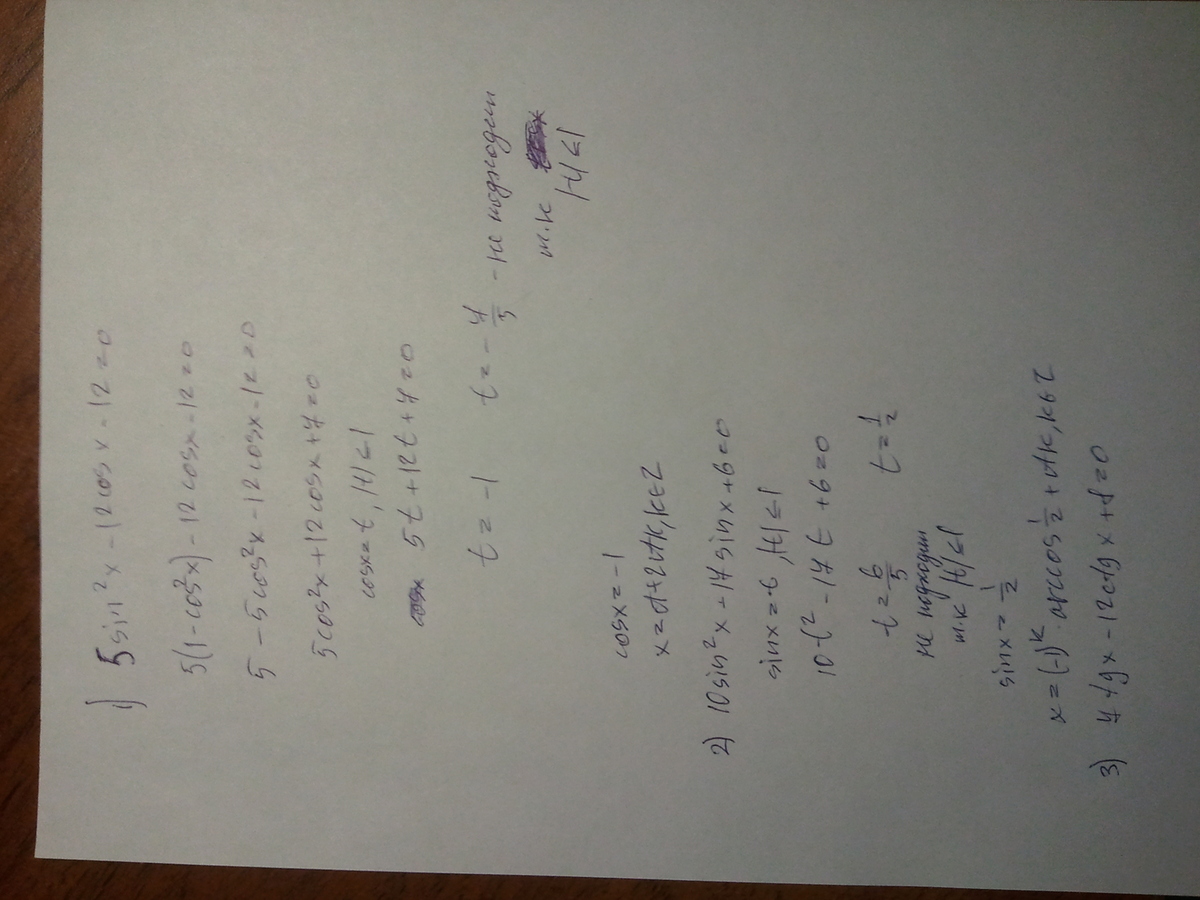 1) 5 sin²x - 12 cos x - 12 = 0
5(1 - cos²x) - 12 cos x - 12 = 0
5 - 5 cos²x - 12 cos x - 12 = 0
5 cos²x + 12 cos x + 7 = 0
cos x = t, |t| ≤ 1
5t + 12t + 7 = 0
t = -1 t = -7/5 - не подходит
т.к |t| ≤ 1
cos x = -1
x = π + 2πk, k∈Z
2) 10 sin²x - 17 sin x + 6 = 0
sin x = t, |t| ≤ 1
10t² - 17t + 6 = 0
t = 6/5 t = 1/2
не подходит
т.к |t| ≤ 1
sin x = 1/2
x = (-1)^k · arccos 1/2 + πk, k∈Z
3) 7 tg x - 12 ctg x + 8 = 0